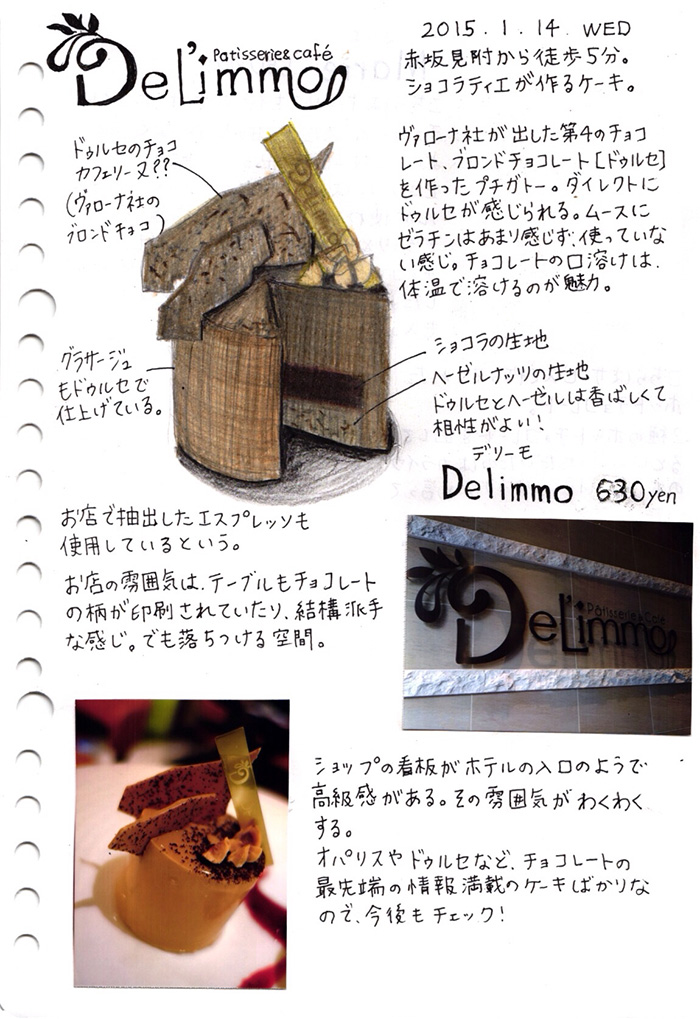 Patisserie&café
DeL'immo
2015.1.14 WED
赤坂見附から徒歩5分。
ショコラティエが作るケーキ。
ヴァローナ社が出した第4のチョコ
レート、ブロンドチョコレート[ドゥルセ]
を作ったプチガトー。ダイレクトに
ドゥルセが感じられる。ムースに
ゼラチンはあまり感じず、使っていな
い感じ。チョコレートの口溶けは、
体温で溶けるのが魅力。
ドゥルセのチョコ
カフェリーヌ??
(ヴァローナ社の
ブロンドチョコ)
Delimmo
グラサージュ
もドゥルセで
仕上げている。
ショコラの生地
ヘーゼルナッツの生地
ドゥルセとヘーゼルは香ばしくて
相性がよい!
デリーモ
Delimmo 630yen
お店で抽出したエスプレッソも
使用しているという。
お店の雰囲気は、テーブルもチョコレート
の柄が印刷されていたり、結構派手
な感じ。でも落ちつける空間。
Pâtisserie&Café
DeL'immo
ショップの看板がホテルの入口のようで
高級感がある。その雰囲気がわくわく
する。
オパリスやドゥルセなど、チョコレートの
最先端の情報満載のケーキばかりな
ので、今後もチェック!